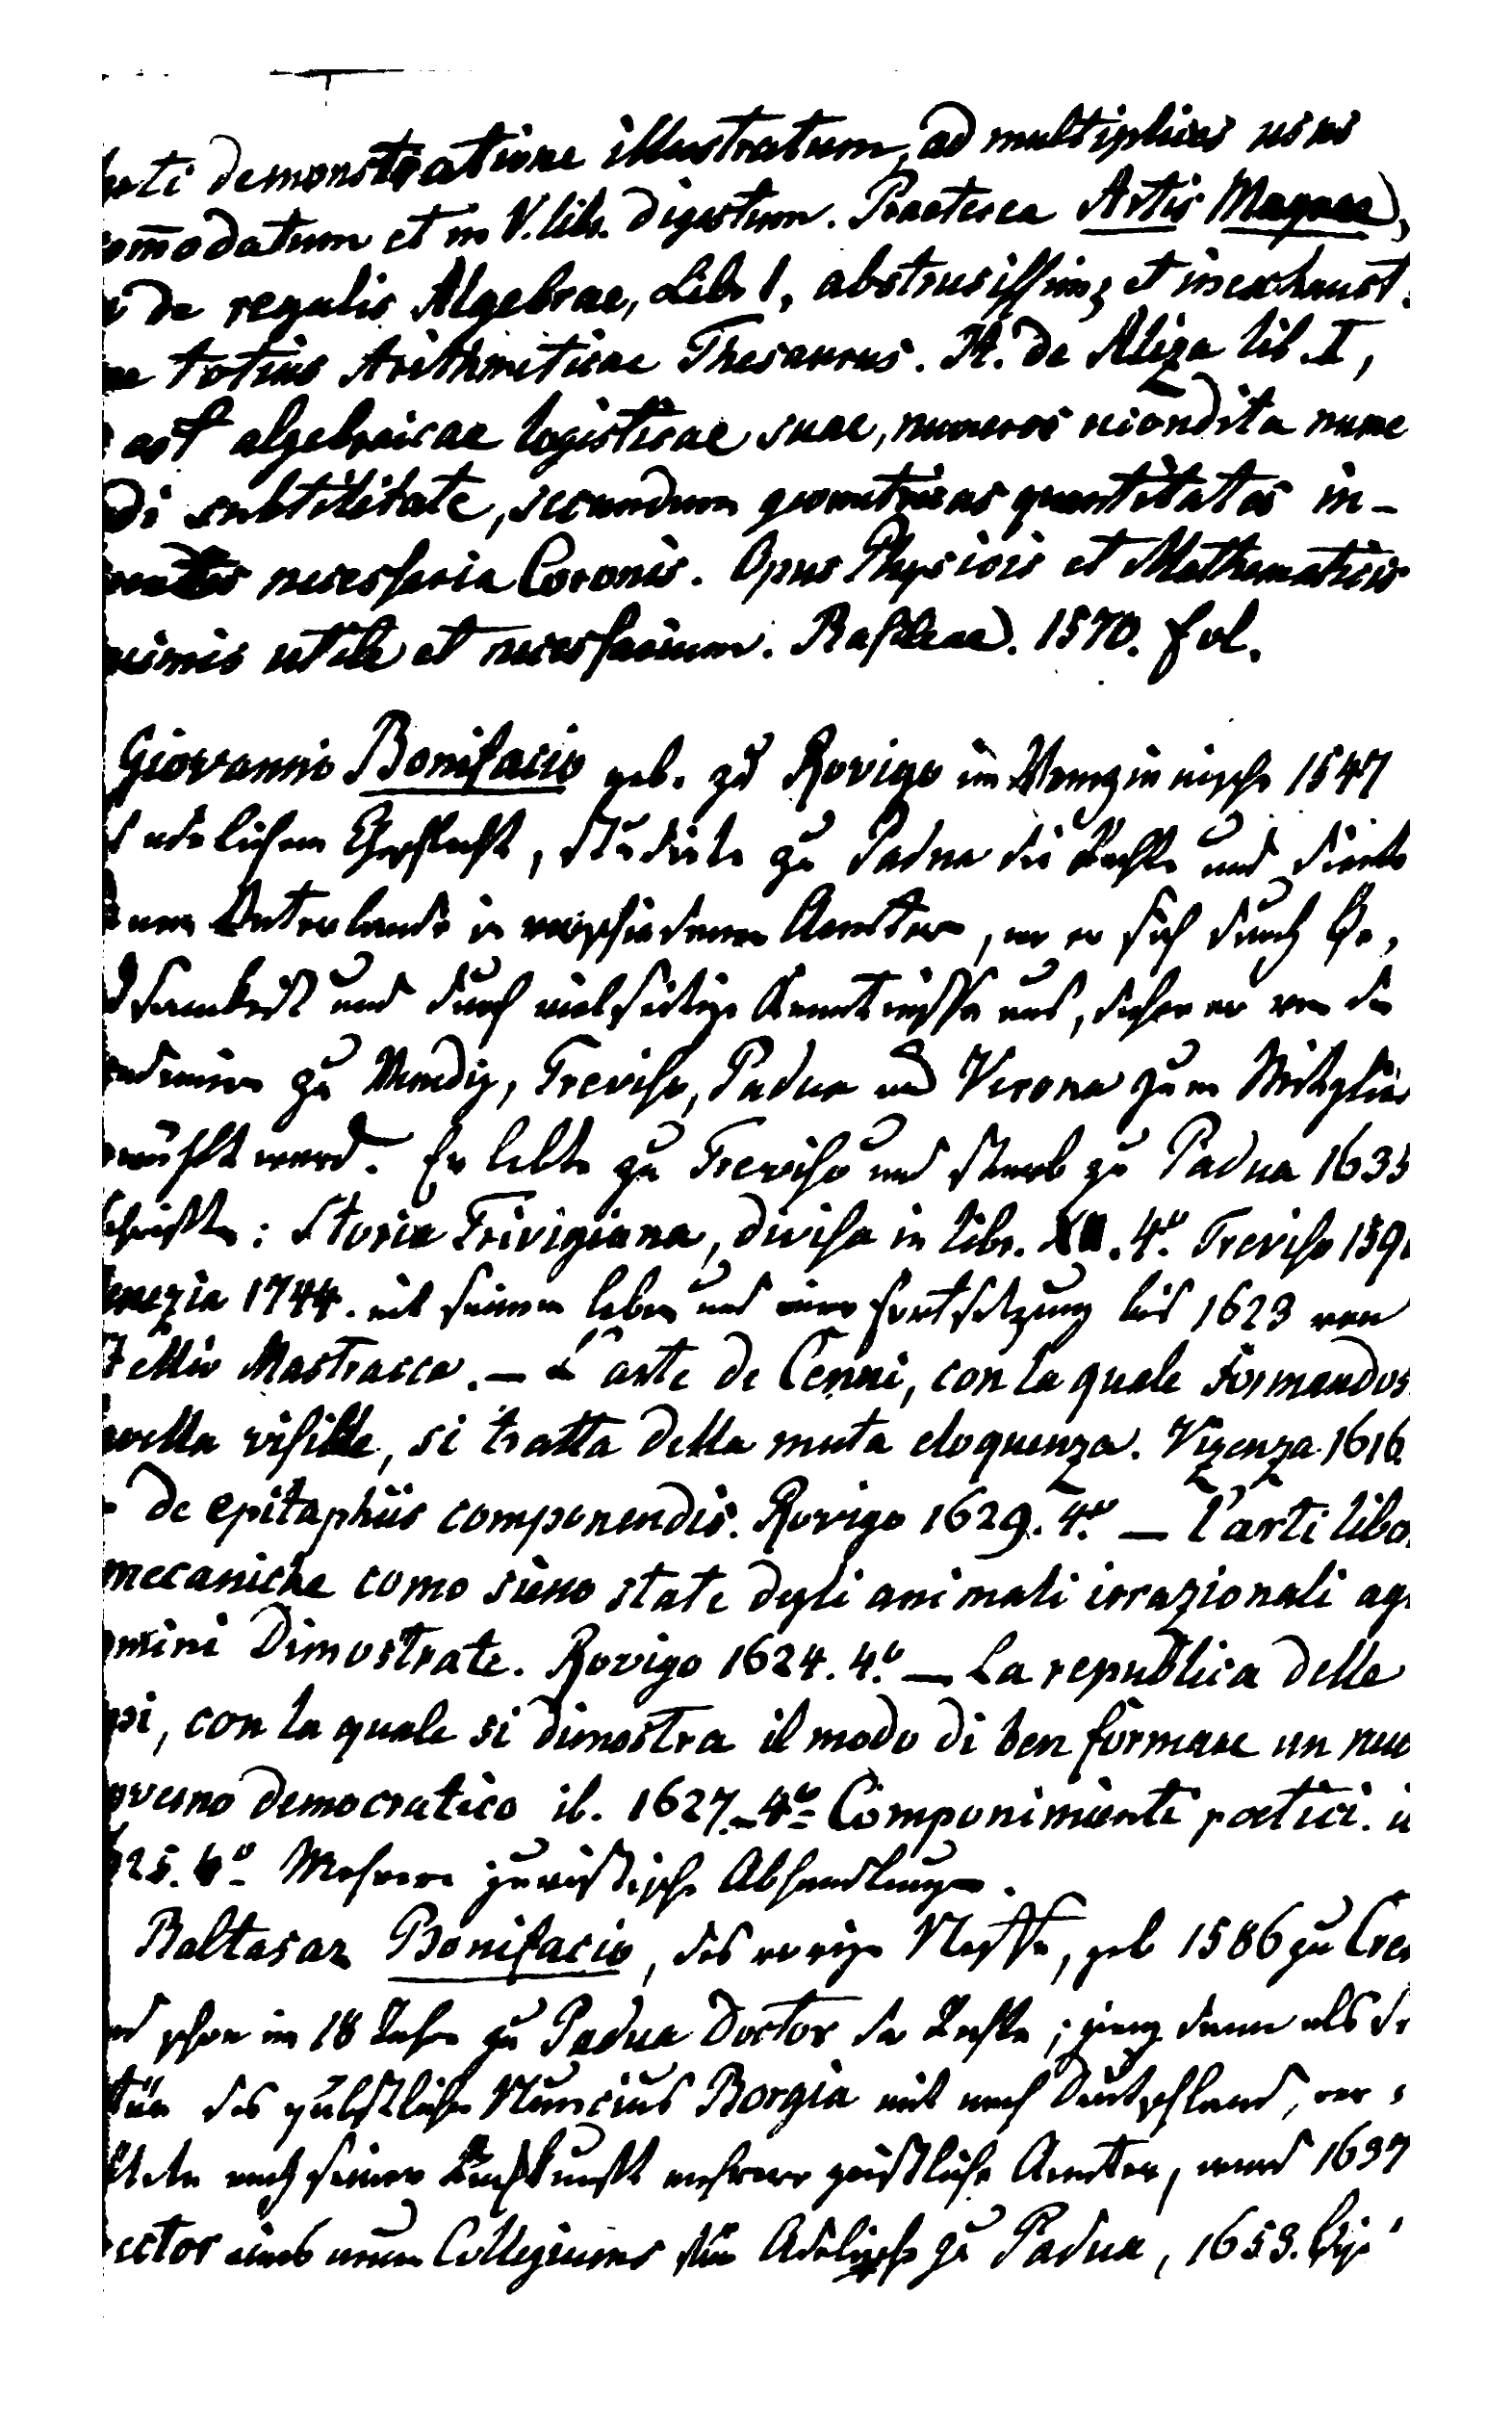 demonstratione illustratum, ad multiplices usus
om̅odatum et in V. lib. digestum. Praeterea Artis Magnae,
de regulis Algebrae, Lib I, abstrusissimz et inexhaust.
totius Arithmeticae Thesaurus. It. de Aliza lib. I,
est algebraicae logisticae suae, numeros recondita nume
di subtilitate, secundum geometricas quantitates in-
necessaria Coronis. Opus Physicis et Mathematicis
nimis utile et necessarium. Basileae. 1570. fol.
Giovanni Bonifacio geb. zu Rovigo im Venezianische 1547
adelichem Geschlecht, studirte zu Padua die Rechte und diente
nem Vaterlande in verschiedenen Aemtern, wo er sich durch Ge,
samkeit und durch vielseitige Kenntnisse aus, daher er von den
ademien zu Venedig, Treviso, Padua und Verona zum Mitglied
wählt ward. Er lebte zu Treviso und starb zu Padua 1635
Schriften: Storia Trivigiana, divisa in libr. XII. 4º. Treviso 159
enezia 1744. mit seinem Leben und einer Fortsetzung bis 1623 von
Mastracca. — L'arte de Cenni, con la quale formandos
avella visibile, si tratta della muta eloquenza. Vizenza 1616.
de epitaphiis componendis. Rovigo 1629. 4º. — l'arti libe
mecaniche como sieno state degli animali irrazionali ag
omini dimostrate. Rovigo 1624. 4º. — La republica delle
pi, con la quale si dimostra il modo di ben formare un nuo
overno democratico ib. 1627. 4º — Componimienti poetici. i
25. 4º — Mehrere juristische Abhandlungen.
Baltasar Bonifacio, des vorigen Neffe, geb 1586 zu Cre
schon im 18 Jahre zu Padua Doctor der Rechte; ging dann als Se
tär des päbstlichen Nuncius Borgia mit nach Deutschland, ver,
nach seiner Rückkunft mehrere geistliche Aemter, ward 1637
ector eines neuen Collegiums für Adeliche zu Padua, 1653.